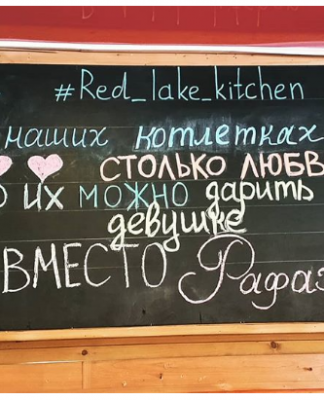 #Red_lake_kitchen
наших котлетках
СТОЛЬКО ЛЮБВ
О ИХ МОЖНО дарить
девушке
ВМЕСТО Рафаэ